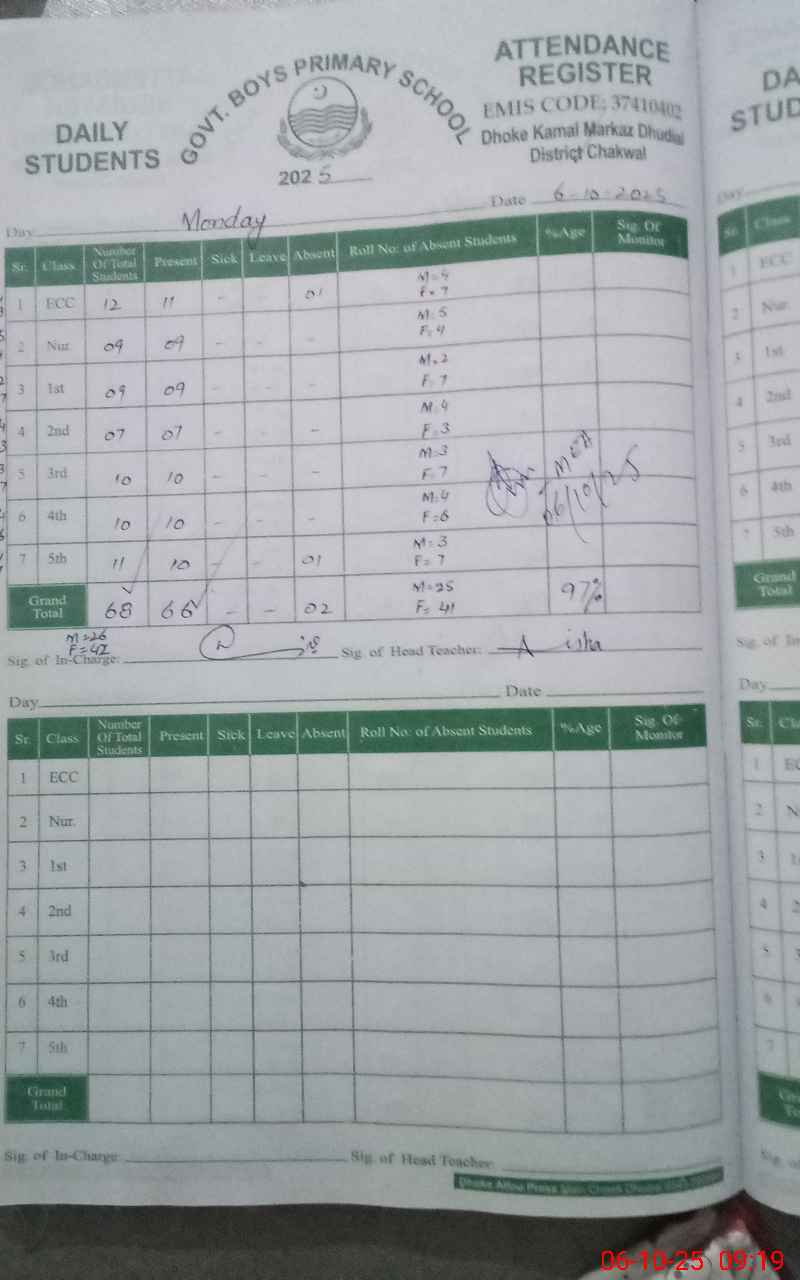 DAILY STUDENTS
GOVT. BOYS PRIMARY SCHOOL
2025
ATTENDANCE REGISTER
EMIS CODE: 37410402
Dhoke Kamal Markaz Dhudial
District Chakwal
Day Monday Date 6-10-2025
Sr. Class Number Of Total Students Present Sick Leave Absent Roll No: of Absent Students %Age Sig. Of Monitor
1 ECC 12 11 - - 01 M=4 F=7
2 Nur. 09 09 - - - M=5 F=4
3 1st 09 09 - - - M=2 F=7
4 2nd 07 07 - - - M=4 F=3
5 3rd 10 10 - - - M=3 F=7
6 4th 10 10 - - - M=4 F=6
7 5th 11 10 - - 01 M=3 F=7
MEA
06/10/25
Grand Total 68 66 - - 02 M=25 F=41 97%
M=26
F=42
Sig. of In-Charge: Sig. of Head Teacher: Aisha
Day Date
Sr. Class Number Of Total Students Present Sick Leave Absent Roll No: of Absent Students %Age Sig. Of Monitor
1 ECC
2 Nur.
3 1st
4 2nd
5 3rd
6 4th
7 5th
Grand Total
Sig. of In-Charge: Sig. of Head Teacher:
DA
STUD
Day
Sr. Class
1 ECC
2 Nur.
3 1st
4 2nd
5 3rd
6 4th
7 5th
Grand Total
Sig. of In
Day
Sr. Cla
1 EC
2 N
3 1
4 2
5 3
6 4
7
06-10-25 09:19